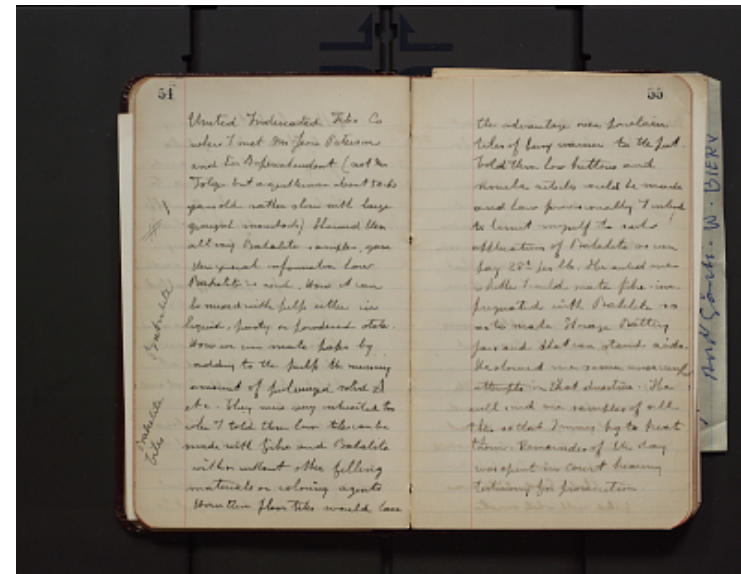 54
United Indurated Fibre Co
where I met Mr Jesse Peterson
and his Superintendent (not Mr
but a gentleman about 50-60
years old rather slow with large
grayish mustache) Showed them
all my Bakelite samples, gave
them general information how
Bakelite is used. How it can
be mixed with pulp either in
liquid, pasty or powdered state.
How we can make paper by
adding to the pulp the necessary
amount of pulverized solid A
etc. They were very interested too
when I told them how tiles can be
made with fibre and Bakelite
with or without other filling
materials or coloring agents
floor tiles would have
# 1
Bakelite
Bakelite
tiles
55
the advantage over porcelain
tiles of being warmer to the feet.
Told them how buttons and
articles could be made
and how provisionally I
to limit myself to such
application of Bakelite as can
pay 25¢ per lb. He asked me
whether I could make fibre im-
pregnated with Bakelite so
as to make Storage Battery
jars and that can stand acids.
He showed me some
attempts in that direction. He
will send me samples of all
this so that I may try to treat
them. Remainder of the day
was spent in court hearing
testimony for prosecution
W. BIERY